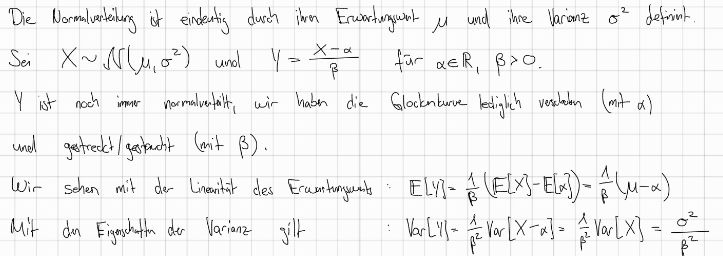 Die Normalverteilung ist eindeutig durch ihren Erwartungswert μ und ihre Varianz σ² definiert.
Sei X ~ N(μ, σ²) und Y = (X-α)/β für α∈ℝ, β>0.
Y ist noch immer normalverteilt, wir haben die Glockenkurve lediglich verschoben (mit α)
und gestreckt/gestaucht (mit β).
Wir sehen mit der Linearität des Erwartungswerts : E[Y] = 1/β (E[X]-E[α]) = 1/β (μ-α)
Mit den Eigenschaften der Varianz gilt : Var[Y] = 1/β² Var[X-α] = 1/β² Var[X] = σ²/β²